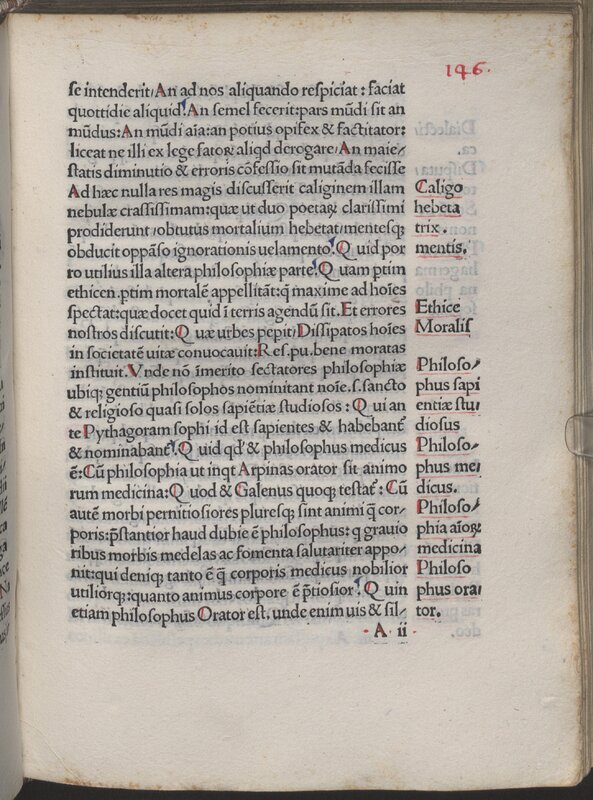 146.
se intenderit/An ad nos aliquando respiciat : faciat
quottidie aliquid? An semel fecerit:pars mũdi sit an
mũdus:An mũdi aĩa:an potius opifex & factitator:
liceat ne illi ex lege fatoꝝ aliqd derogare/An maie/
statis diminutio & erroris cõfessio sit mutãda fecisse
Ad hæc nulla res magis discusserit caliginem illam
nebulæ crassissimam:quæ ut duo poetaꝝ clarissimi
prodiderunt/obtutus mortalium hebetat/mentesqꝫ
obducit oppãso ignorationis uelamento? Quid por
ro utilius illa altera philosophiæ parte? Quam ptim
ethicen .ptim mortalẽ appellitãt:q̃ maxime ad hoĩes
spectat:quæ docet quid ĩ terris agendũ sit. Et errores
nostros discutit: Quæ urbes pepit/Dissipatos hoĩes
in societatẽ uitæ conuocauit: Res.pu.bene moratas
instituit. Vnde nõ imerito sectatores philosophiæ
ubiqꝫ gentiũ philosophos nominitant noĩe .s. sancto
& religioso quasi solos sapiẽtiæ studiosos : Qui an
te Pythagoram sophi id est sapientes & habebant᷑
& nominabant᷑? Quid qd' & philosophus medicus
ẽ: Cũ philosophia ut inqt Arpinas orator sit animo
rum medicina: Quod & Galenus quoqꝫ testat᷑: Cũ
autẽ morbi pernitiosiores pluresqꝫ sint animi q̃ cor-
poris:p̃stantior haud dubie ẽ philosophus:q grauio
ribus morbis medelas ac fomenta salutariter appo/
nit:qui deniqꝫ tanto ẽ q̃ corporis medicus nobilior
utiliorqꝫ:quanto animus corpore ẽ p̃tiosior? Quin
etiam philosophus Orator est, unde enim uis & sil-
A ii
Caligo
hebeta
trix.
mentis.
Ethice
Moralis
Philoso/
phus sapi
entiæ stu
diosus
Philoso/
phus me
dicus.
Philoso/
phia aĩoꝝ
medicina
Philoso
phus ora
tor.